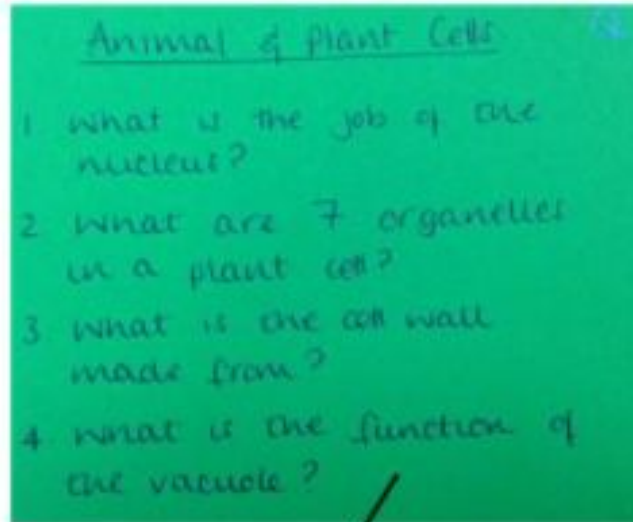 Animal & Plant Cells
1 What is the job of the
nucleus?
2 What are 7 organelles
in a plant cell?
3 What is the cell wall
made from?
4 What is the function of
the vacuole?